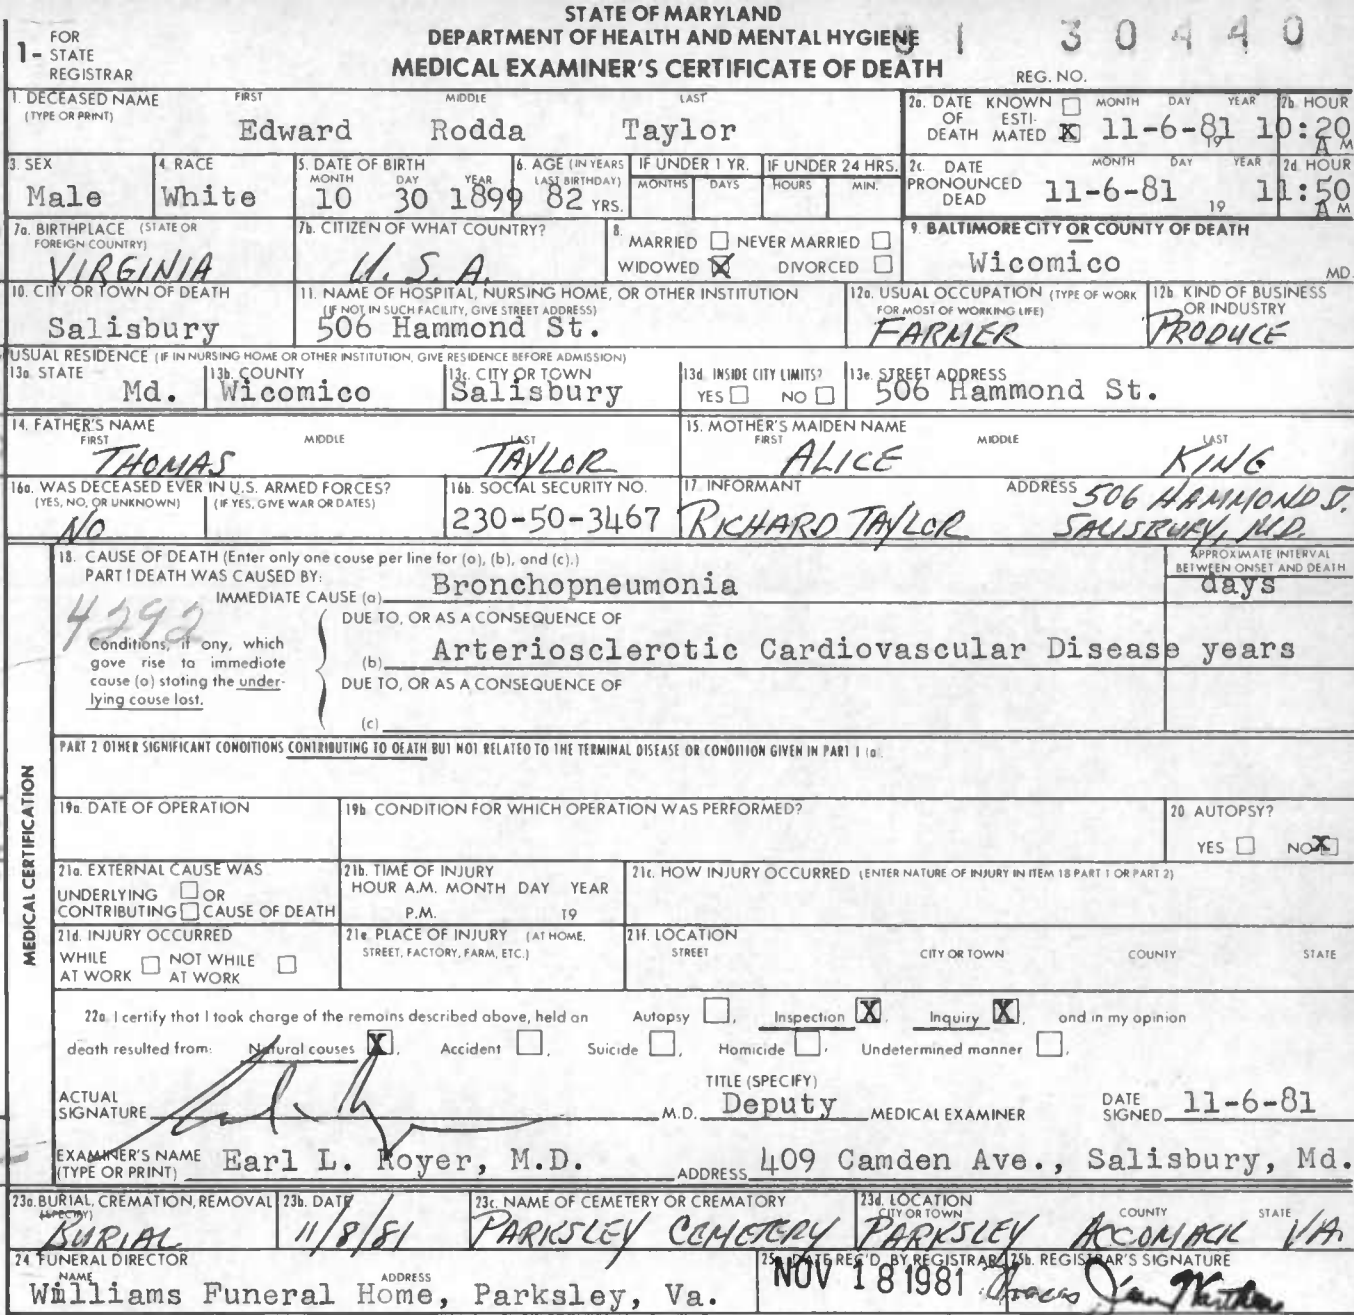 STATE OF MARYLAND
DEPARTMENT OF HEALTH AND MENTAL HYGIENE
MEDICAL EXAMINER'S CERTIFICATE OF DEATH
1- FOR STATE REGISTRAR
REG. NO. 81 30440
1. DECEASED NAME (TYPE OR PRINT) FIRST MIDDLE LAST
Edward Rodda Taylor
2a. DATE OF DEATH KNOWN ☐ ESTIMATED ☒ MONTH DAY YEAR 11-6-81 19
2b. HOUR 10:20 A M
3. SEX Male
4. RACE White
5. DATE OF BIRTH MONTH DAY YEAR 10 30 1899
6. AGE (IN YEARS LAST BIRTHDAY) 82 YRS.
IF UNDER 1 YR. MONTHS DAYS
IF UNDER 24 HRS. HOURS MIN.
2c. DATE PRONOUNCED DEAD MONTH DAY YEAR 11-6-81 19
2d HOUR 11:50 A M
7a. BIRTHPLACE (STATE OR FOREIGN COUNTRY) VIRGINIA
7b. CITIZEN OF WHAT COUNTRY? U.S.A.
8. MARRIED ☐ NEVER MARRIED ☐
WIDOWED ☒ DIVORCED ☐
9. BALTIMORE CITY OR COUNTY OF DEATH Wicomico MD.
10. CITY OR TOWN OF DEATH Salisbury
11. NAME OF HOSPITAL, NURSING HOME, OR OTHER INSTITUTION (IF NOT IN SUCH FACILITY, GIVE STREET ADDRESS) 506 Hammond St.
12a. USUAL OCCUPATION (TYPE OF WORK FOR MOST OF WORKING LIFE) FARMER
12b. KIND OF BUSINESS OR INDUSTRY PRODUCE
USUAL RESIDENCE (IF IN NURSING HOME OR OTHER INSTITUTION, GIVE RESIDENCE BEFORE ADMISSION)
13a STATE Md.
13b. COUNTY Wicomico
13c. CITY OR TOWN Salisbury
13d. INSIDE CITY LIMITS? YES ☐ NO ☐
13e. STREET ADDRESS 506 Hammond St.
14. FATHER'S NAME FIRST MIDDLE LAST
THOMAS TAYLOR
15. MOTHER'S MAIDEN NAME FIRST MIDDLE LAST
ALICE KING
16a. WAS DECEASED EVER IN U.S. ARMED FORCES? (YES, NO, OR UNKNOWN) (IF YES, GIVE WAR OR DATES) NO
16b. SOCIAL SECURITY NO. 230-50-3467
17. INFORMANT RICHARD TAYLOR
ADDRESS 506 HAMMOND ST. SALISBURY, MD.
MEDICAL CERTIFICATION
18. CAUSE OF DEATH (Enter only one cause per line for (a), (b), and (c).)
PART I DEATH WAS CAUSED BY:
IMMEDIATE CAUSE (a) Bronchopneumonia
APPROXIMATE INTERVAL BETWEEN ONSET AND DEATH days
4292
Conditions, if any, which gave rise to immediate cause (a) stating the underlying cause last.
DUE TO, OR AS A CONSEQUENCE OF
(b) Arteriosclerotic Cardiovascular Disease years
DUE TO, OR AS A CONSEQUENCE OF
(c)
PART 2 OTHER SIGNIFICANT CONDITIONS CONTRIBUTING TO DEATH BUT NOT RELATED TO THE TERMINAL DISEASE OR CONDITION GIVEN IN PART I (a).
19a. DATE OF OPERATION
19b CONDITION FOR WHICH OPERATION WAS PERFORMED?
20 AUTOPSY? YES ☐ NO ☒
21a. EXTERNAL CAUSE WAS UNDERLYING ☐ OR CONTRIBUTING ☐ CAUSE OF DEATH
21b. TIME OF INJURY HOUR A.M. MONTH DAY YEAR P.M. 19
21c. HOW INJURY OCCURRED (ENTER NATURE OF INJURY IN ITEM 18 PART 1 OR PART 2)
21d. INJURY OCCURRED WHILE AT WORK ☐ NOT WHILE AT WORK ☐
21e PLACE OF INJURY (AT HOME, STREET, FACTORY, FARM, ETC.)
21f. LOCATION STREET CITY OR TOWN COUNTY STATE
22a I certify that I took charge of the remains described above, held an Autopsy ☐, Inspection ☒, Inquiry ☒, and in my opinion
death resulted from: Natural causes ☒, Accident ☐, Suicide ☐, Homicide ☐, Undetermined manner ☐,
ACTUAL SIGNATURE M.D.
TITLE (SPECIFY) Deputy MEDICAL EXAMINER
DATE SIGNED 11-6-81
EXAMINER'S NAME (TYPE OR PRINT) Earl L. Royer, M.D.
ADDRESS 409 Camden Ave., Salisbury, Md.
23a. BURIAL, CREMATION, REMOVAL (SPECIFY) BURIAL
23b. DATE 11/8/81
23c. NAME OF CEMETERY OR CREMATORY PARKSLEY CEMETERY
23d. LOCATION CITY OR TOWN COUNTY STATE
PARKSLEY ACCOMACK VA.
24 FUNERAL DIRECTOR NAME ADDRESS
Williams Funeral Home, Parksley, Va.
25a. DATE REC'D. BY REGISTRAR NOV 18 1981
25b. REGISTRAR'S SIGNATURE